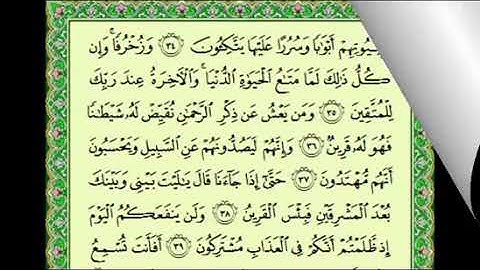 وَلِبُيُوتِهِمْ أَبْوَٰبًا وَسُرُرًا عَلَيْهَا يَتَّكِـُٔونَ ٣٤ وَزُخْرُفًا ۚ وَإِن
كُلُّ ذَٰلِكَ لَمَّا مَتَٰعُ ٱلْحَيَوٰةِ ٱلدُّنْيَا ۚ وَٱلْءَاخِرَةُ عِندَ رَبِّكَ
لِلْمُتَّقِينَ ٣٥ وَمَن يَعْشُ عَن ذِكْرِ ٱلرَّحْمَٰنِ نُقَيِّضْ لَهُۥ شَيْطَٰنًا
فَهُوَ لَهُۥ قَرِينٌ ٣٦ وَإِنَّهُمْ لَيَصُدُّونَهُمْ عَنِ ٱلسَّبِيلِ وَيَحْسَبُونَ
أَنَّهُم مُّهْتَدُونَ ٣٧ حَتَّىٰٓ إِذَا جَآءَنَا قَالَ يَٰلَيْتَ بَيْنِى وَبَيْنَكَ
بُعْدَ ٱلْمَشْرِقَيْنِ فَبِئْسَ ٱلْقَرِينُ ٣٨ وَلَن يَنفَعَكُمُ ٱلْيَوْمَ
إِذ ظَّلَمْتُمْ أَنَّكُمْ فِى ٱلْعَذَابِ مُشْتَرِكُونَ ٣٩ أَفَأَنتَ تُسْمِعُ